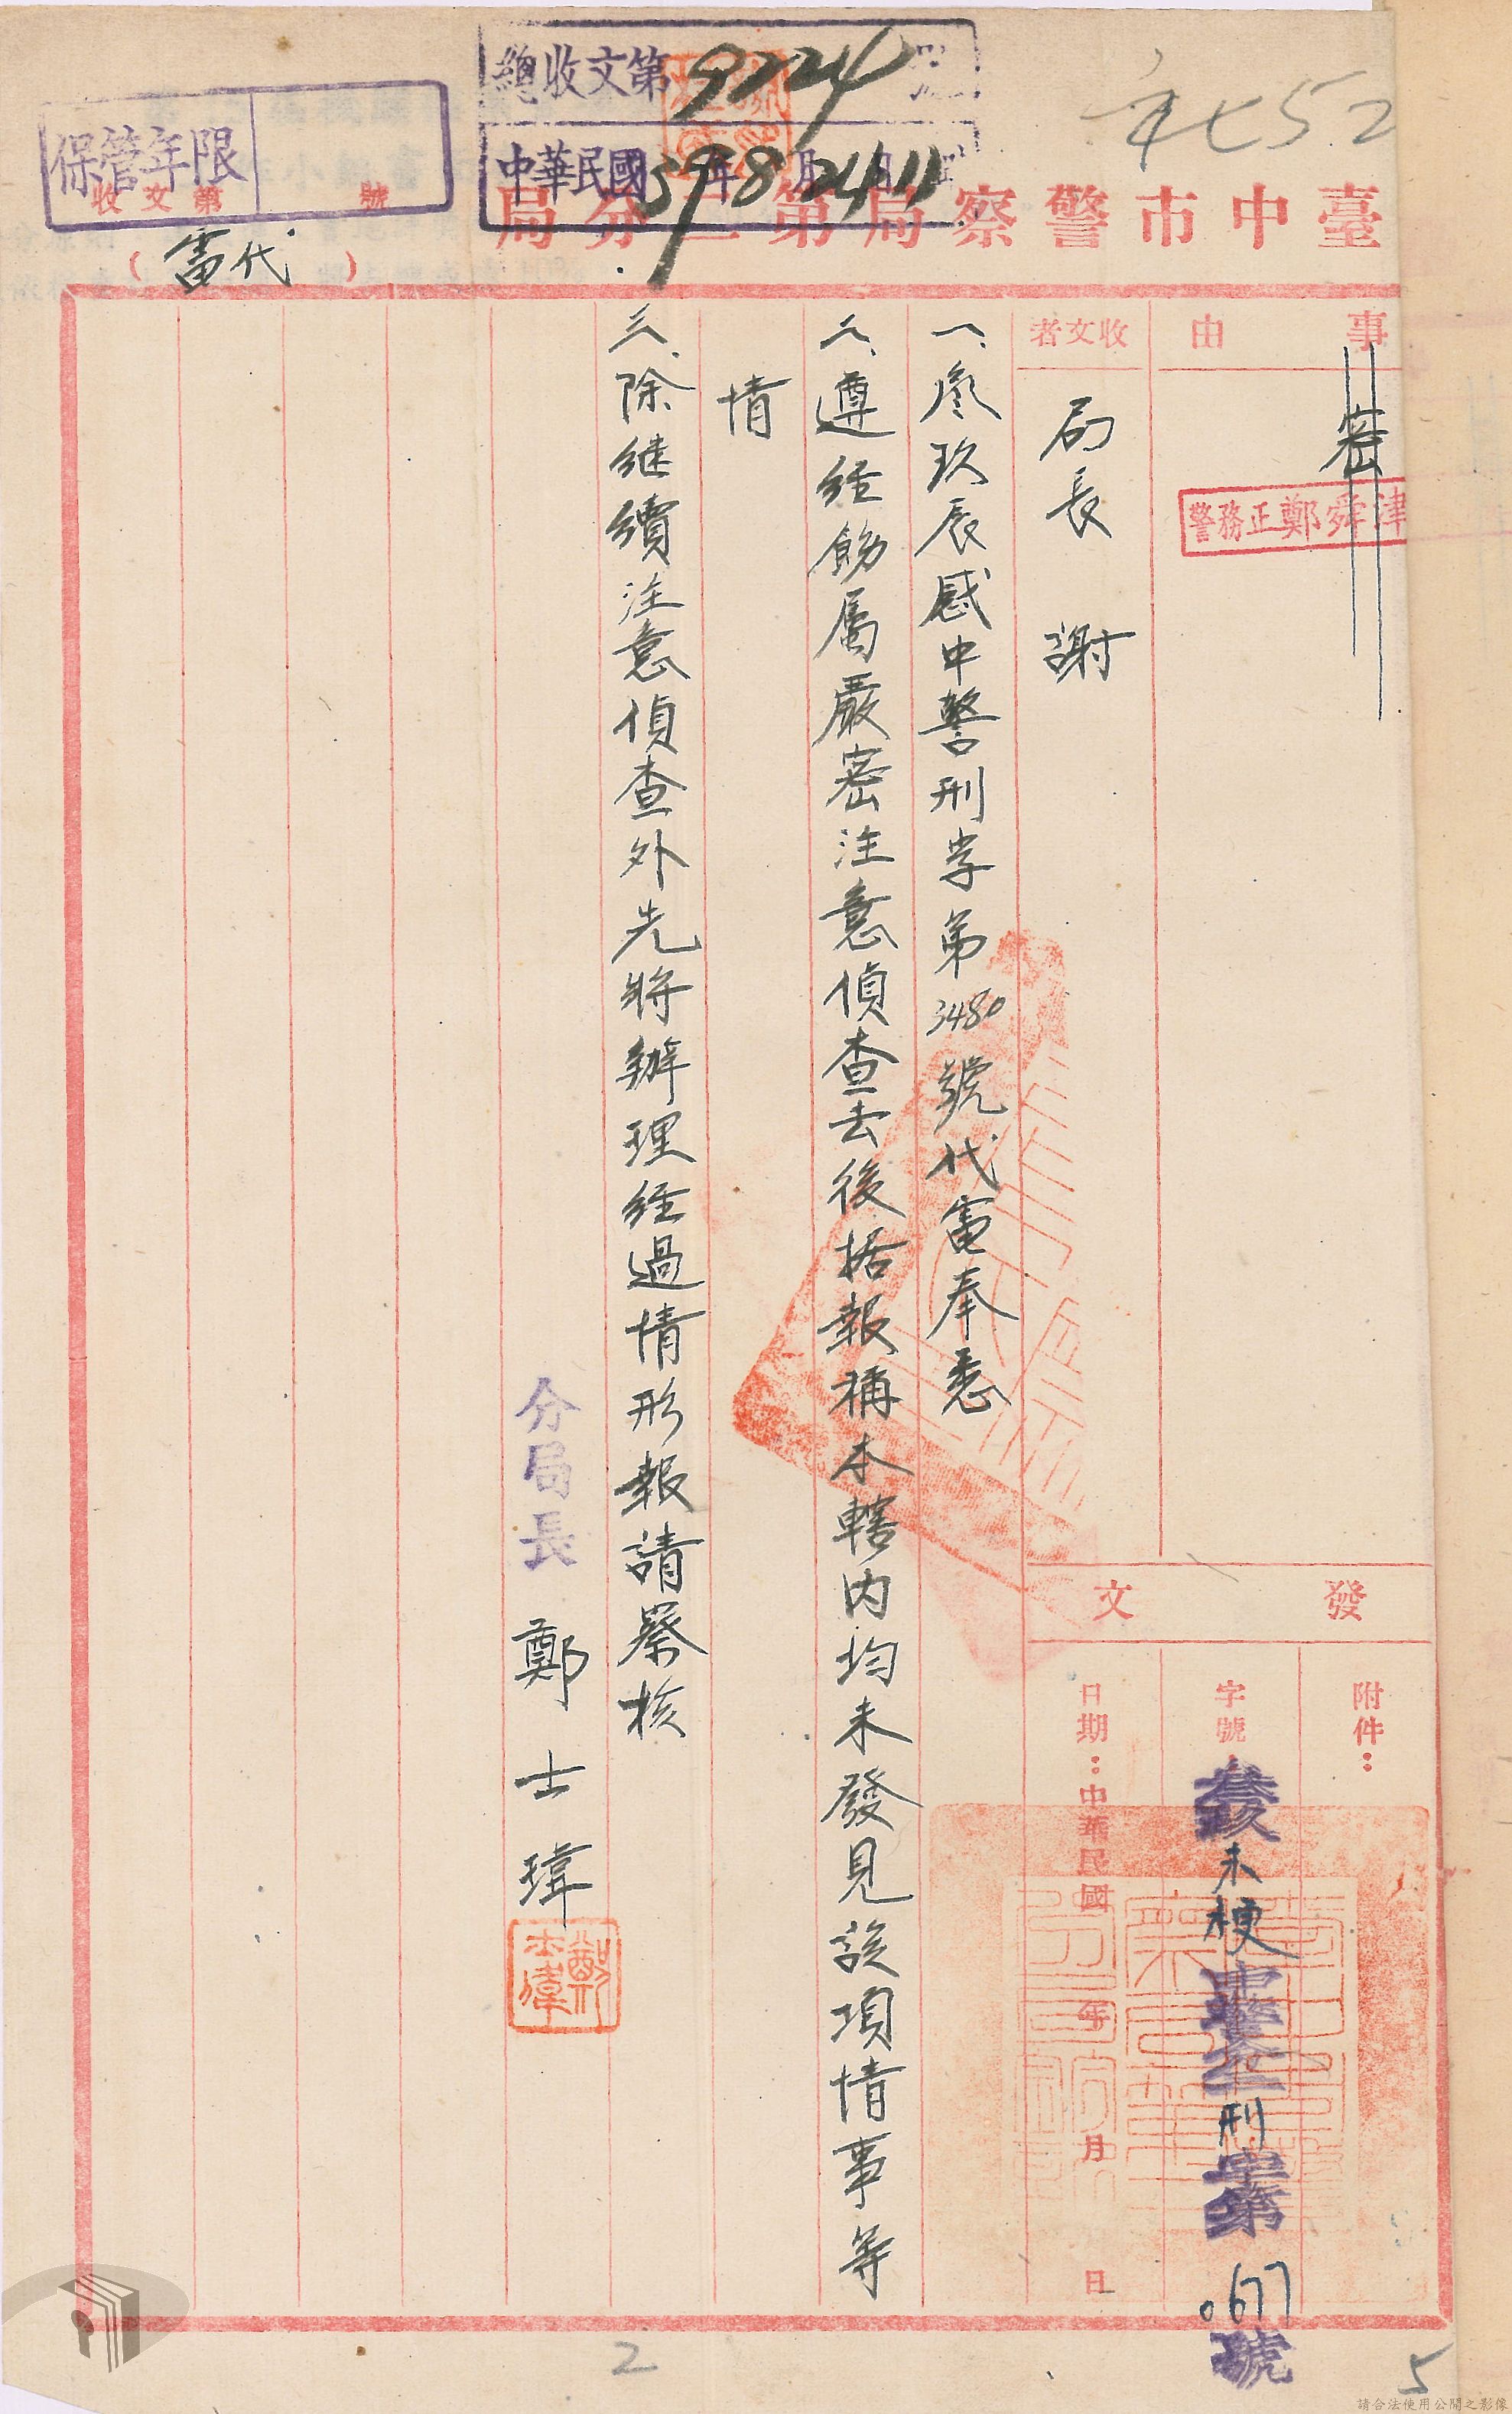 總收文第9224號
中華民國39年8月24日11
年七52
保管年限
收文第 號
臺中市警察局第二分局
(電代)
事由
密
警務正鄭舜津
收文者
局長 謝
發文
附件：
字號：叁玖未梗中警分二刑字第0677號
日期：中華民國 年 月 日
一、叁玖辰感中警刑字第3480號代電奉悉
二、遵經飭屬嚴密注意偵查去後据報稱本轄內均未發見該項情事等
情
三、除继續注意偵查外先將辦理經過情形報請察核
分局長 鄭士瑋
鄭士偉
2
5
請合法使用公開之影像